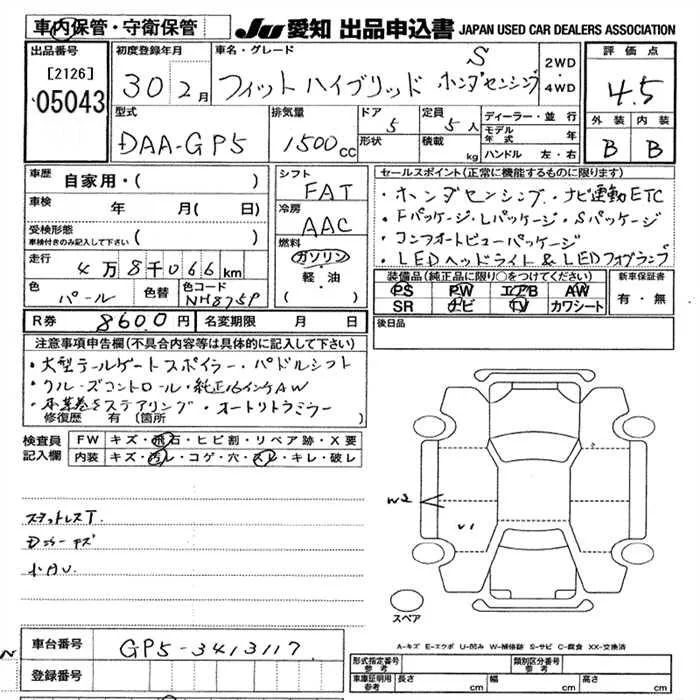 車内保管・守衛保管 JU 愛知 出品申込書 JAPAN USED CAR DEALERS ASSOCIATION
出品番号 初度登録年月 車名・グレード 評価点
[2126]
05043 30 2月 フィットハイブリッド S ホンダセンシング 2WD・4WD 4.5
型式 排気量 ドア 定員 ディーラー・並行 外装 内装
DAA-GP5 1500cc 5 5人 モデル年式 年 B B
形状 積載 kg ハンドル 左・右
車歴 自家用・( ) シフト FAT
車検 年 月(日) 冷房 AAC
受検形態 車検付きのみ記入して下さい ( ) 燃料 ガソリン 軽・油
走行 4万8千066km
色 パール 色替 色コード NH875P
R券 8600円 名変期限 月 日
セールスポイント(正常に機能するものに限ります)
・ホンダセンシング・ナビ連動ETC
・Fパッケージ・Lパッケージ・Sパッケージ
・コンフォートビューパッケージ
・LEDヘッドライト&LEDフォグランプ
装備品(純正品に限り○をつけてください) 新車保証書
PS PW エアB AW 有・無
SR ナビ TV カワシート
後日品
注意事項申告欄(不具合内容等は具体的に記入して下さい)
・大型テールゲートスポイラー・パドルシフト
・クルーズコントロール・純正16インチAW
・本革巻きステアリング・オートリトラミラー
修復歴 有(箇所 )
検査員記入欄 FW キズ・飛石・ヒビ割・リペア跡・X要
内装 キズ・汚レ・コゲ・穴・スレ・キレ・破レ
スタットレスT.
小AU.
W2
U1
スペア
A-キズ E-エクボ U-凹み W-補修跡 S-サビ C-腐食 XX-交換済
車台番号 GP5-3413117
登録番号
形式指定番号 参考 類別区分番号 参考
車庫証明用 参考 長さ cm 幅 cm 高さ cm